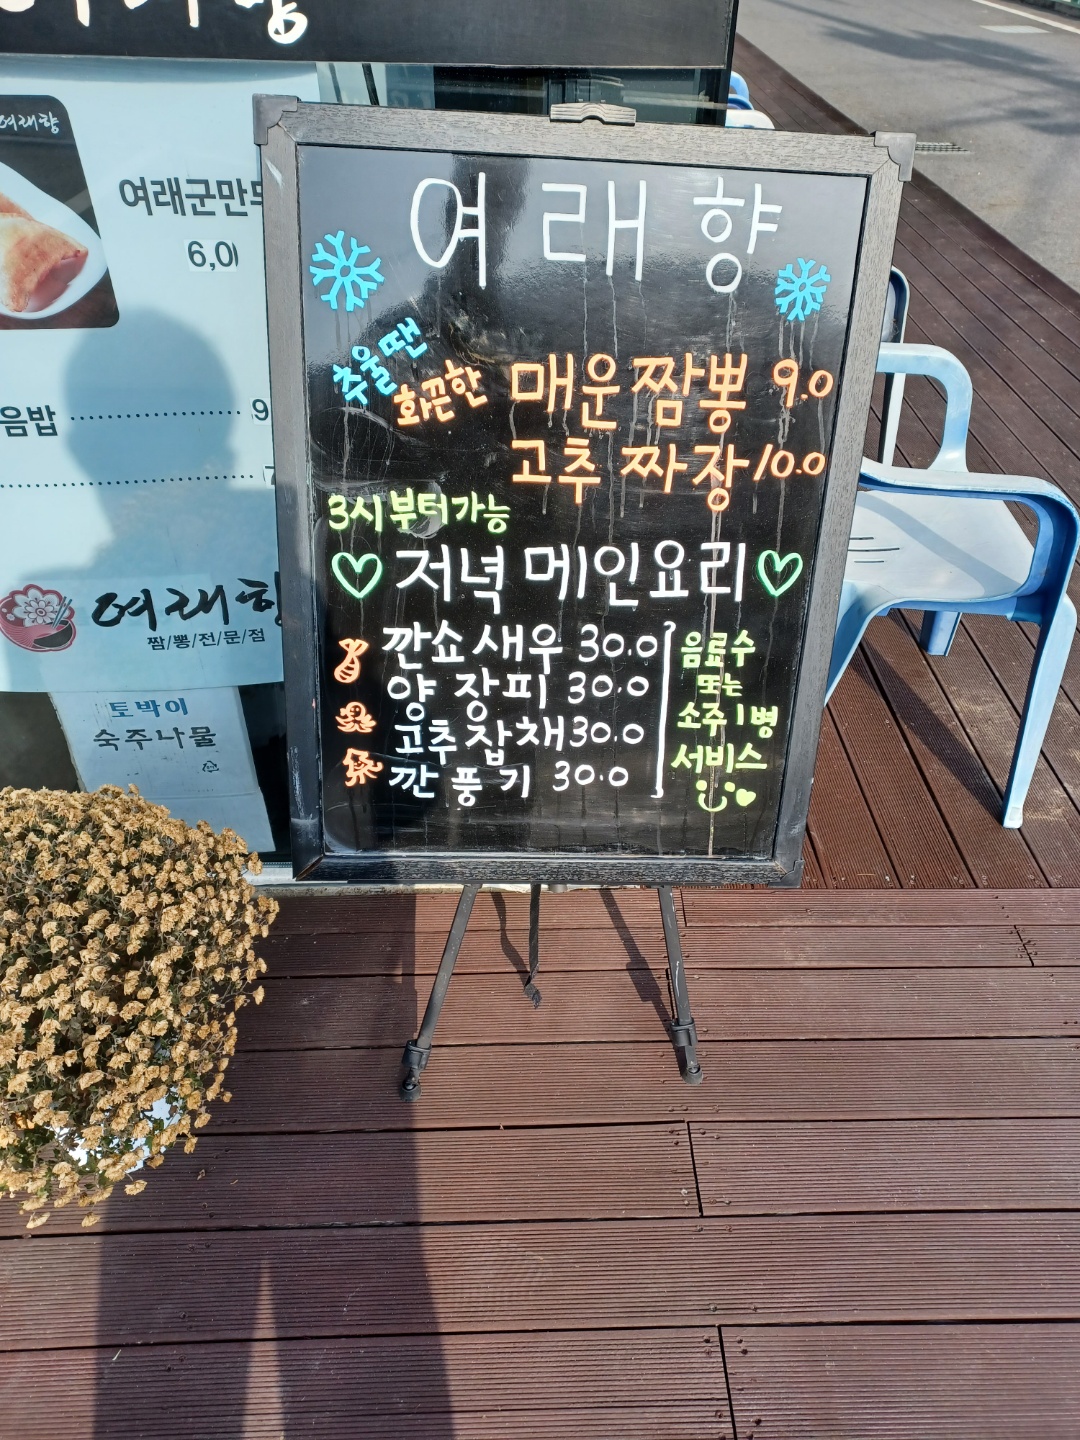 여래향
여래군만두
6,0
음밥 9
여래향
짬/뽕/전/문/점
토박이
숙주나물
여래향
추울땐
화끈한 매운짬뽕 9.0
고추짜장 10.0
3시부터가능
저녁 메인요리
깐쇼새우 30.0
양장피 30.0
고추잡채 30.0
깐풍기 30.0
음료수
또는
소주1병
서비스